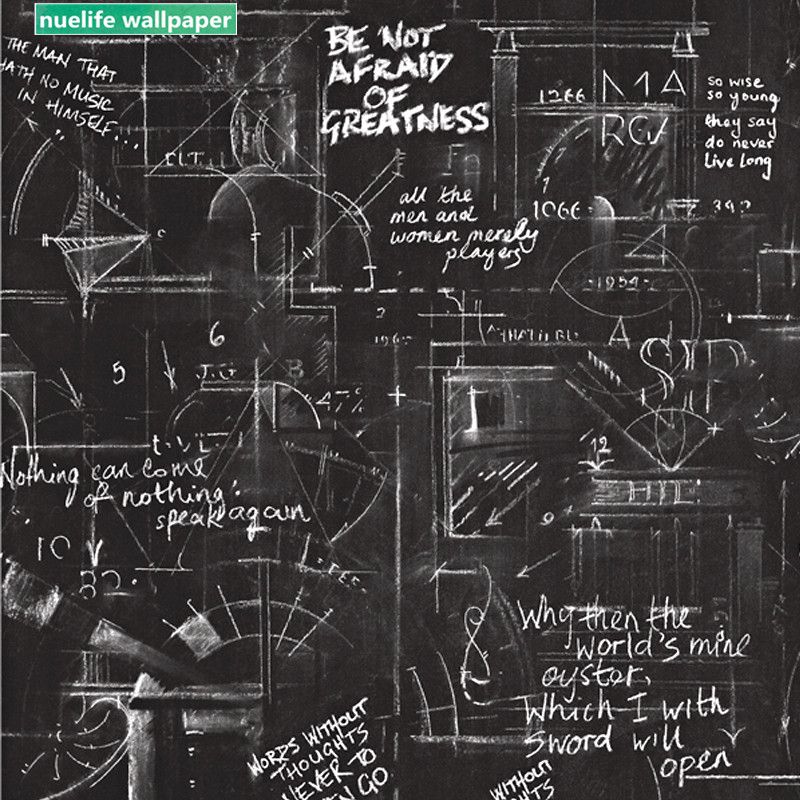 nuelife wallpaper
THE MAN THAT
HATH NO MUSIC
IN HIMSELF...
BE NOT
AFRAID
OF
GREATNESS
1266
so wise
so young
they say
do never
live long
all the
men and
women merely
players
1066
1954
6
5
J.G
B
A
12
Nothing can come
of nothing:
speak again
10
Why then the
world's mine
oyster,
Which I with
sword will
open
WORDS WITHOUT
THOUGHTS
NEVER TO
GO
WITHOUT